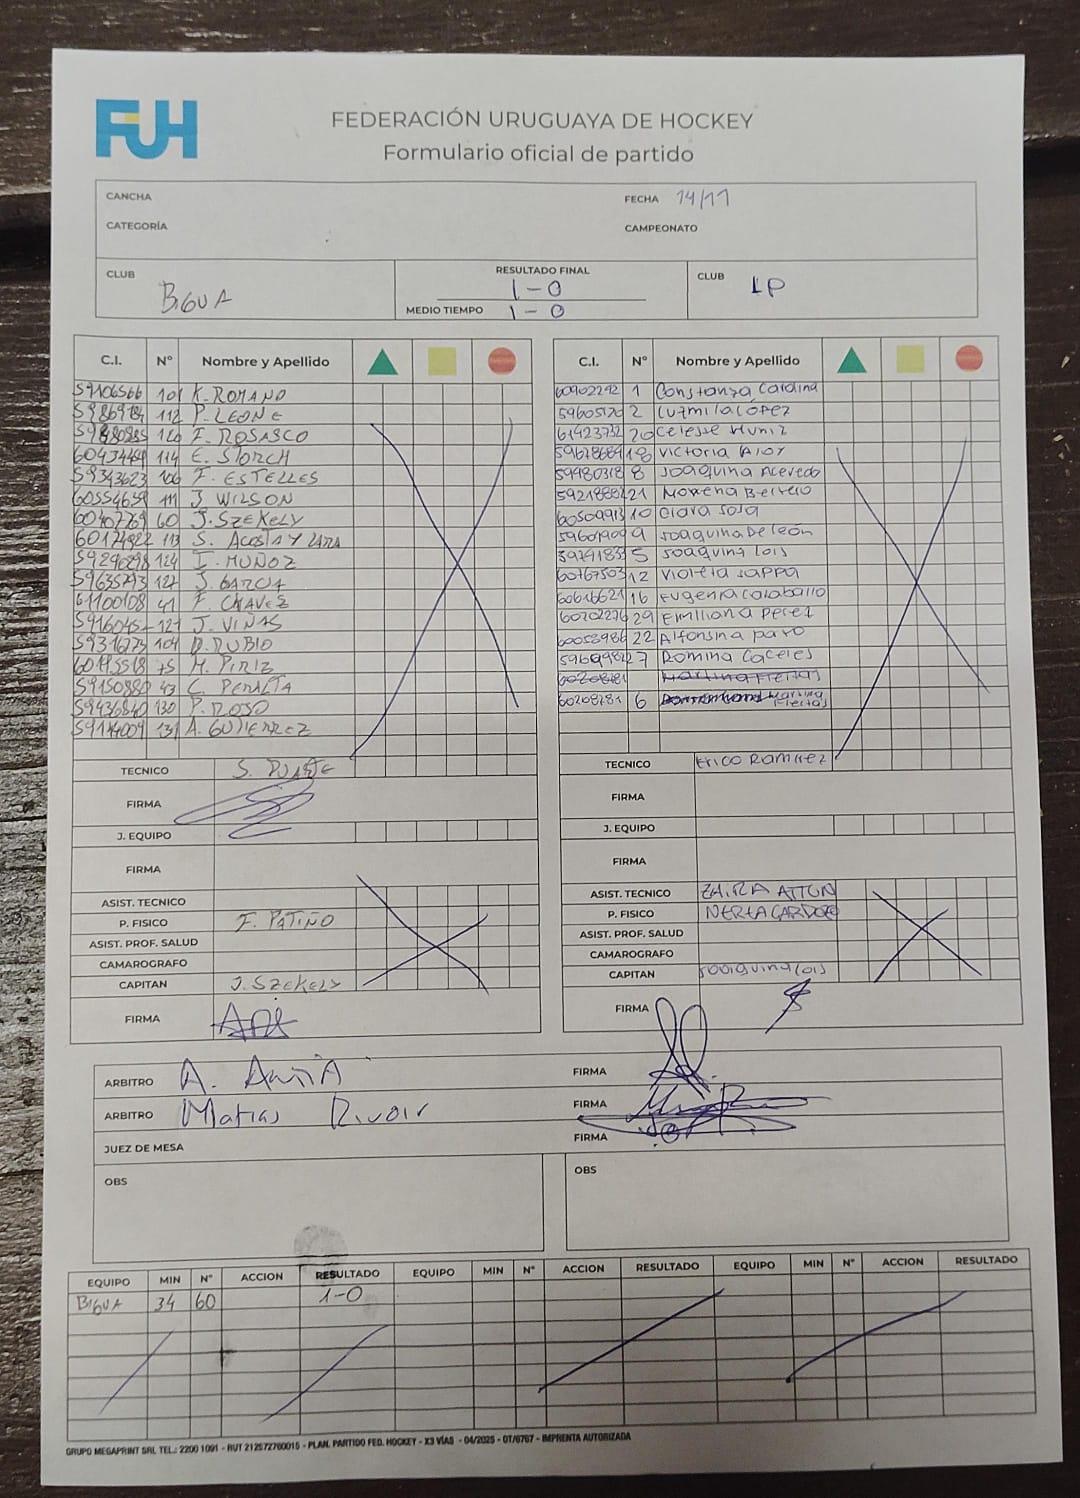 FUH
FEDERACIÓN URUGUAYA DE HOCKEY
Formulario oficial de partido
CANCHA
FECHA 14/11
CATEGORÍA
CAMPEONATO
CLUB BIGUA
RESULTADO FINAL 1-0
MEDIO TIEMPO 1-0
CLUB LP
C.I. N° Nombre y Apellido
59106566 101 K. ROMANO
112 P. LEONE
F. ROSASCO
114 E. STORCH
59343623 106 F. ESTELLES
60554659 111 J. WILSON
60 J. SZEKELY
113 S. ACOSTA Y LARA
124 I. MUÑOZ
127 J. GARCIA
61100108 41 F. CHAVEZ
J. VIÑAS
104 D. RUBIO
75 M. PIRIZ
59150880 43 C. PERALTA
59436840 130 P. ROSO
A. GUTIERREZ
TECNICO S. DUARTE
FIRMA
J. EQUIPO
FIRMA
ASIST. TECNICO
P. FISICO F. PATIÑO
ASIST. PROF. SALUD
CAMAROGRAFO
CAPITAN J. SZEKELY
FIRMA
C.I. N° Nombre y Apellido
60902242 1 Constanza Cardina
2 Luzmila López
61423732 20 Celesse Muniz
18 Victoria Aloy
59980318 8 Joaquina Acevedo
21 Morena Berreio
10 Clara Sosa
9 Joaquina De León
5 Joaquina Lois
60767503 12 Violeta Sappa
60616621 16 Eugenia Caraballo
60202276 29 Emiliana Perez
60058986 22 Alfonsina
7 Romina Caceres
Martina Freitas
60208281 6 Martina Freitas
TECNICO Erico Ramirez
FIRMA
J. EQUIPO
FIRMA
ASIST. TECNICO ZAIRA ATTON
P. FISICO NEREA CARDOZO
ASIST. PROF. SALUD
CAMAROGRAFO
CAPITAN Joaquina Lois
FIRMA
ARBITRO A.
FIRMA
ARBITRO Matias Rivoir
FIRMA
JUEZ DE MESA
FIRMA
OBS
OBS
EQUIPO MIN N° ACCION RESULTADO EQUIPO MIN N° ACCION RESULTADO EQUIPO MIN N° ACCION RESULTADO
BIGUA 34 60 1-0
GRUPO MEGAPRINT SRL TEL.: 2200 1091 - RUT 212572760015 - PLAN. PARTIDO FED. HOCKEY - X3 VÍAS - 04/2025 - OT/6767 - IMPRENTA AUTORIZADA